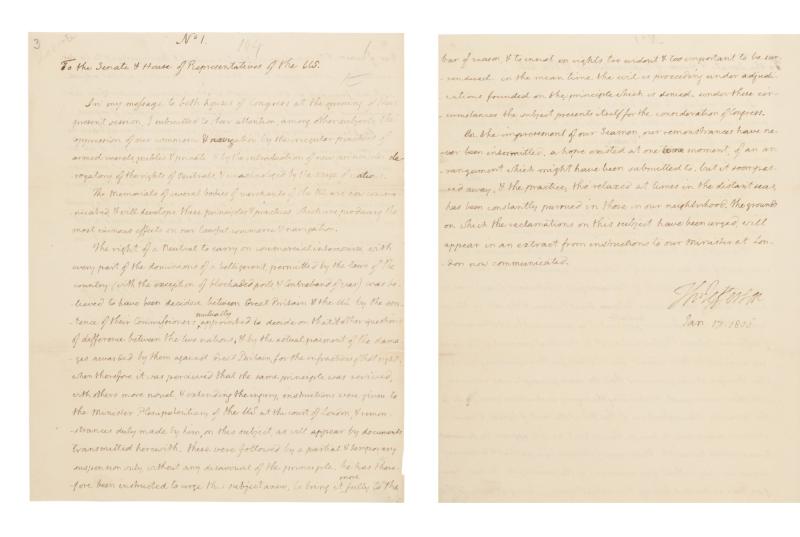 3
No 1.
To the Senate & House of Representatives of the US.
In my message to both houses of Congress at the opening of their
present session, I submitted to their attention, among other subjects, the
oppression of our commerce & navigation by the irregular practices of
armed vessels public & private, & by the introduction of new principles de-
rogatory of the rights of Neutrals, & unacknoleged by the usage of nations.
The Memorials of several bodies of merchants of the US. are now commu-
nicated, & will develope these principles & practices, which are producing the
most ruinous effects on our lawful commerce & navigation.
The right of a Neutral to carry on commercial intercourse with
every part of the dominions of a belligerent, permitted by the laws of the
country (with the exception of blockaded ports & Contraband of war) was be-
lieved to have been decided between Great Britain & the US. by the sen-
tence of their Commissioners mutually appointed to decide on that & other questions
of difference between the two nations, & by the actual paiment of the dama-
ges awarded by them against Great Britain, for the infractions of that right.
when therefore it was percieved that the same principle was revived,
with others more novel, & extending the injury, instructions were given to
the Minister Plenipotentiary of the US at the court of London, & remon-
-strances duly made by him, on this subject, as will appear by documents
transmitted herewith. these were followed by a partial & temporary
suspension only, without any disavowal of the principle. he has there-
fore been instructed to urge this subject anew, to bring it more fully to the
bar of reason, & to insist on rights too evident & too important to be sur-
-rendered. in the mean time the evil is proceeding under adjudi-
-cations founded on the principle which is denied. under these cir-
-cumstances the subject presents itself for the consideration of Congress.
On the impressment of our Seamen, our remonstrances have ne-
ver been intermitted. a hope existed at one moment, of an ar-
-rangement which might have been submitted to, but it soon pas-
-sed away, & the practice, tho' relaxed at times in the distant seas,
has been constantly pursued in those in our neighborhood. the grounds
on which the reclamations on this subject have been urged, will
appear in an extract from instructions to our Minister at Lon-
-don now communicated.
Th: Jefferson
Jan. 17. 1806.